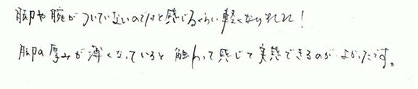 脚や腕がついていないのでは？と感じるくらい軽くなりました！
脚の厚みが薄くなっていると触って感じて実感できるのがよかったです。